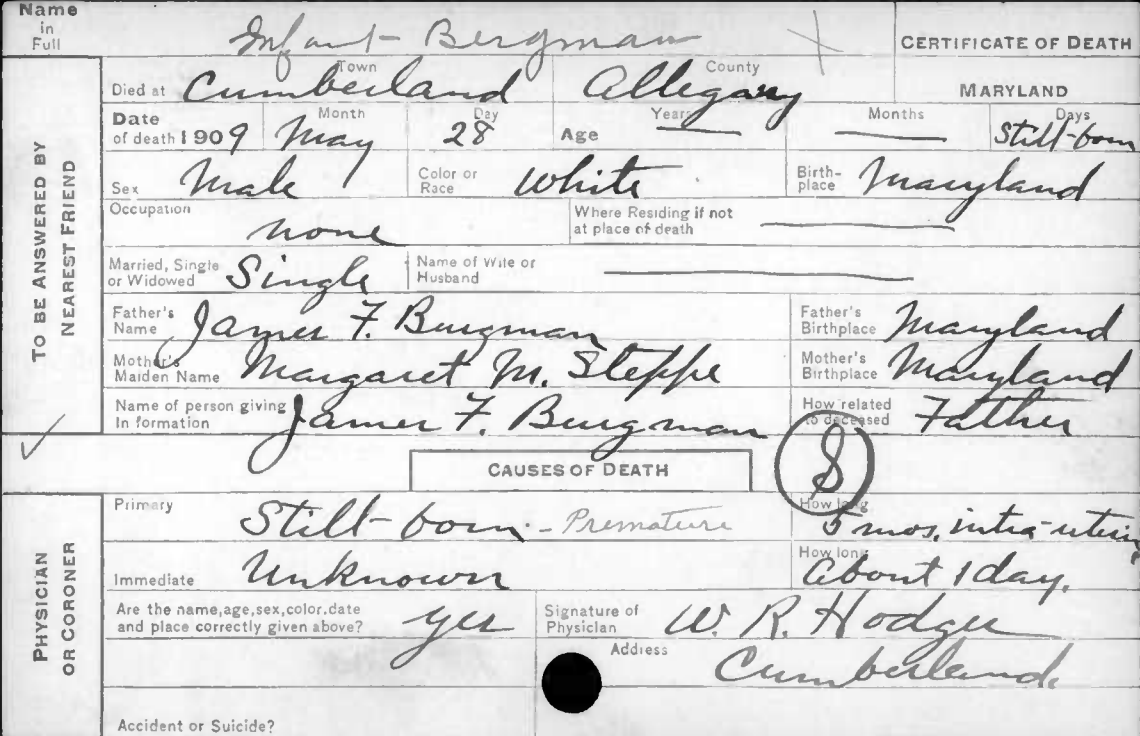 Name in Full Infant Bergman CERTIFICATE OF DEATH
Died at Town Cumberland County Allegany MARYLAND
Date of death 1909 Month May Day 28 Age Years — Months — Days Still-born
Sex Male Color or Race White Birthplace Maryland
Occupation none Where Residing if not at place of death —
Married, Single or Widowed Single Name of Wife or Husband —
Father's Name James F. Burgman Father's Birthplace Maryland
Mother's Maiden Name Margaret M. Steppe Mother's Birthplace Maryland
Name of person giving Information James F. Burgman How related to deceased Father
TO BE ANSWERED BY NEAREST FRIEND
CAUSES OF DEATH
Primary Still-born - Premature How long 5 mos. intra-uterin
Immediate Unknown How long About 1 day.
Are the name, age, sex, color, date and place correctly given above? yes Signature of Physician W. R. Hodges
Address Cumberland.
Accident or Suicide?
PHYSICIAN OR CORONER